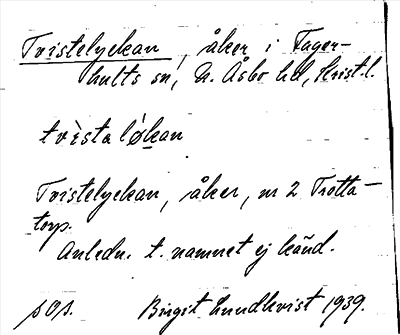 Tvistelyckan, åker i Fager-
hults sn, N. Åsbo hd, Krist.l.
tvistalökan
Tvistelyckan, åker, nr 2 Trotta-
torp.
Anledn. t. namnet ej känd.
s O s. Birgit Lundkvist 1939.